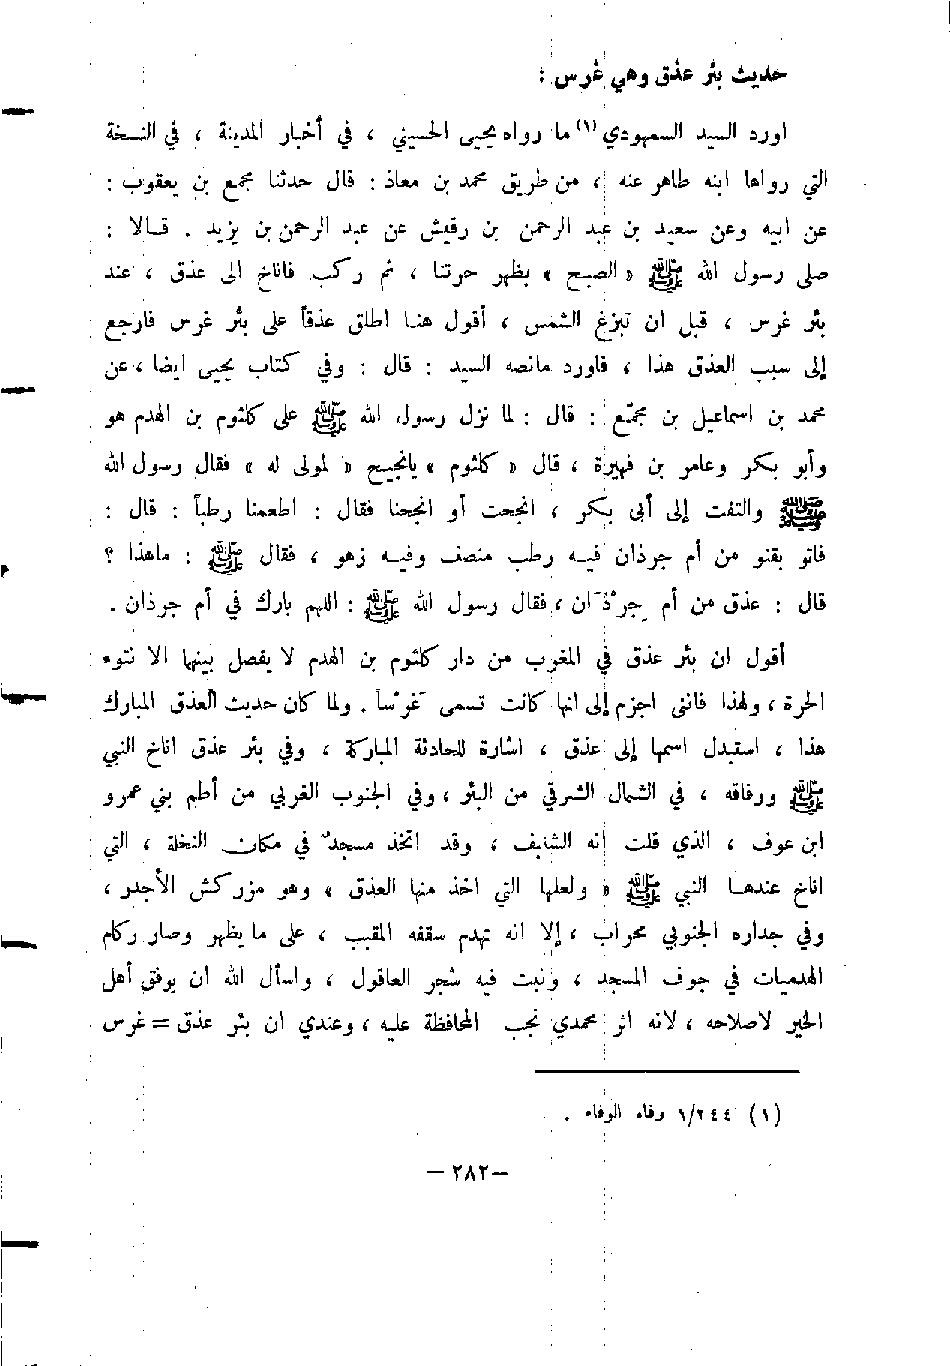 حديث بئر عذق وهي غرس :
اورد السيد السمهودي (١) ما رواه يحيى الحسيني ، في أخبار المدينة ، في النسخة
التي رواها ابنه طاهر عنه ، من طريق محمد بن معاذ : قال حدثنا مجمع بن يعقوب :
عن ابيه وعن سعيد بن عبد الرحمن بن رقيش عن عبد الرحمن بن يزيد . قالا :
صلى رسول الله ﷺ « الصبح » بظهر حرتنا ، ثم ركب فاناخ الى عذق ، عند
بئر غرس ، قبل ان تبزغ الشمس ، أقول هنا اطلق عذقاً على بئر غرس فارجع
إلى سبب العذق هذا ، فاورد مانصه السيد : قال : وفي كتاب يحيى ايضا ، عن
محمد بن اسماعيل بن مجمّع : قال : لما نزل رسول الله ﷺ على كلثوم بن الهدم هو
وأبو بكر وعامر بن فهيرة ، قال « كلثوم » يانجيح « لمولى له » فقال رسول الله
ﷺ والتفت إلى أبي بكر ، انجحت أو انجحنا فقال : اطعمنا رطباً : قال :
فاتو بقنو من أم جرذان فيه رطب منصف وفيه زهو ، فقال ﷺ : ماهذا ؟
قال : عذق من أم جرْذَان ، فقال رسول الله ﷺ : اللهم بارك في أم جرذان .
أقول ان بئر عذق في المغرب من دار كلثوم بن الهدم لا يفصل بينها الا نتوء
الحرة ، ولهذا فانني اجزم إلى انها كانت تسمى غرْساً . ولما كان حديث العذق المبارك
هذا ، استبدل اسمها إلى عذق ، اشارة للحادثة المباركة ، وفي بئر عذق اناخ النبي
ﷺ ورفاقه ، في الشمال الشرقي من البئر ، وفي الجنوب الغربي من أطم بني عمرو
ابن عوف ، الذي قلت انه الشنيف ، وقد اتخذ مسجدٌ في مكان النخلة ، التي
اناخ عندها النبي ﷺ « ولعلها التي اخذ منها العذق » وهو مزركش الأجدر ،
وفي جداره الجنوبي محراب ، إلا انه تهدم سقفه المقبب ، على ما يظهر وصار ركام
الهدميات في جوف المسجد ، ونبت فيه شجر العاقول ، واسأل الله ان يوفق أهل
الخير لاصلاحه ، لانه اثر محمدي تجب المحافظة عليه ، وعندي ان بئر عذق = غرس
(١) ١/٢٤٤ وفاء الوفاء .
— ٢٨٢ —